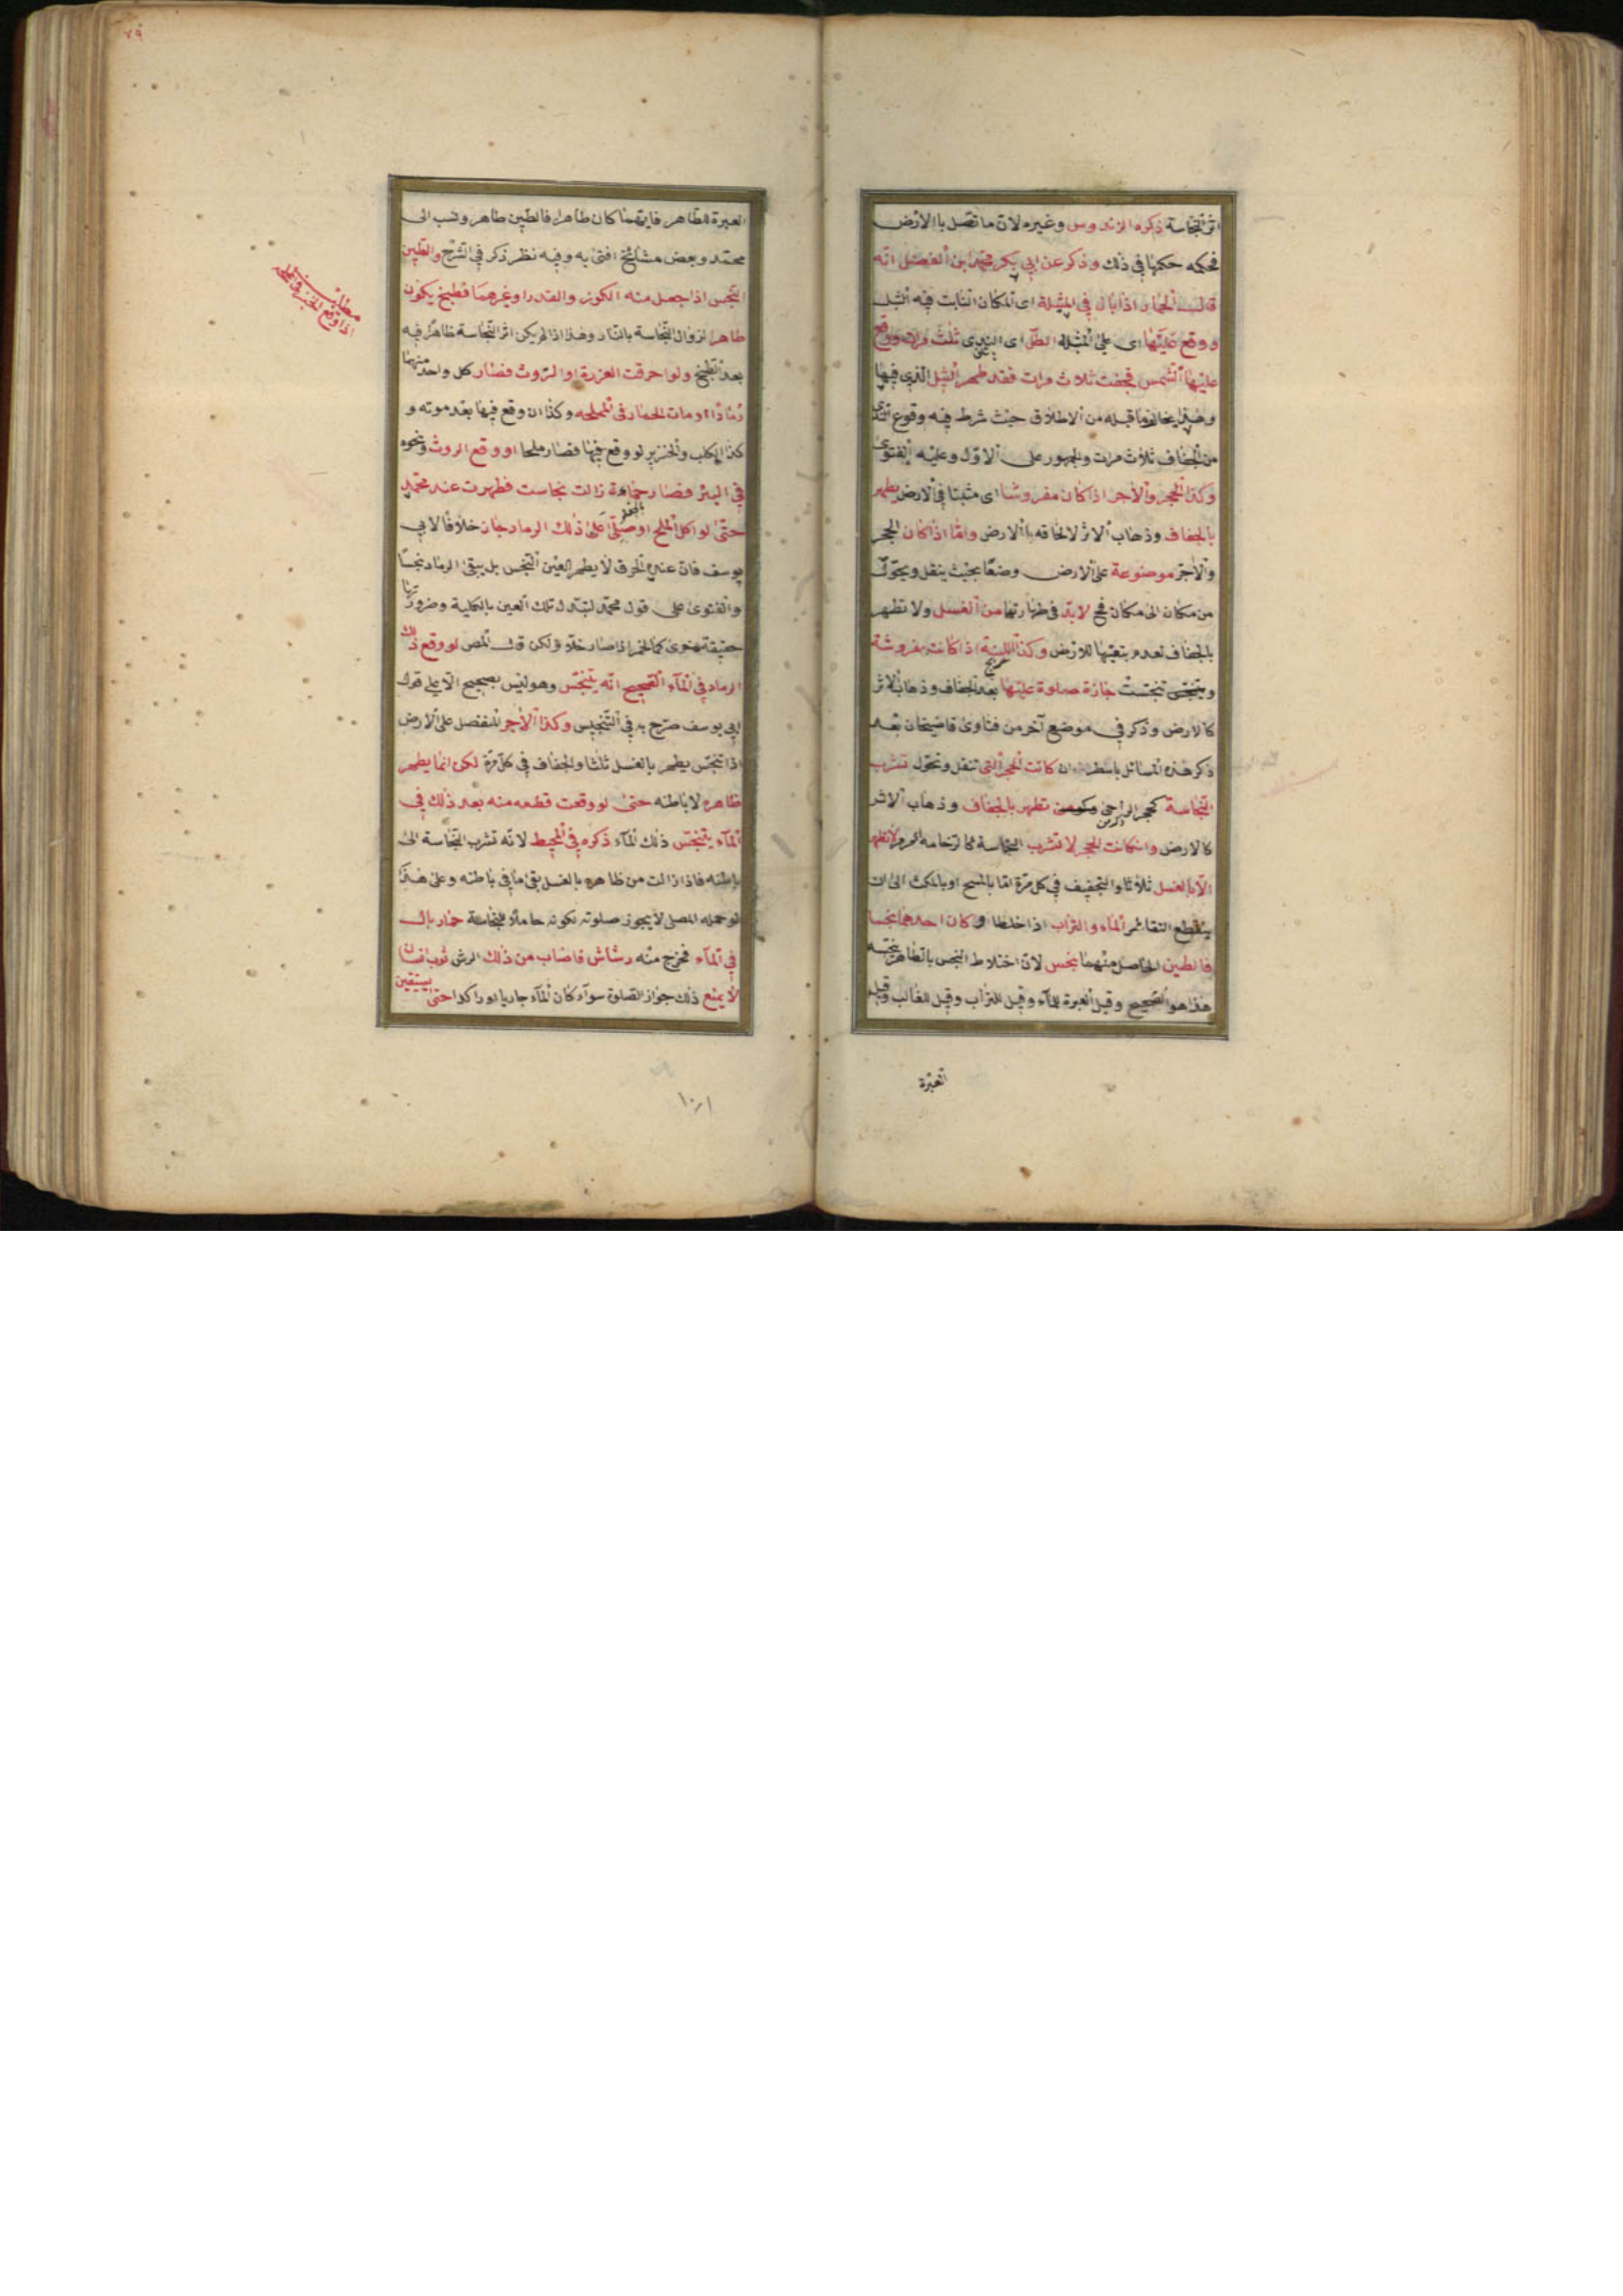 اثر النجاسة ذكره الزندوس وغيره لان ما تصل بالارض
فحكمه حكمها في ذلك وذكر عن ابي بكر محمد بن الفضل انه
قال الحمار اذا بال في المثيلة اى المكان النابت فيه الثيل
ووقع عليها اى على المثيلة الطل اى الندى ثلث مرات ووقع
عليها الشمس فجفت ثلاث مرات فقد طهر الثيل الذى فيها
وهذا يخالف ما قبله من الاطلاق حيث شرط فيه وقوع الندى
من الجفاف ثلاث مرات والجمهور على الاول وعليه الفتوى
وكذا الحجر والاجر اذا كان مفروشا اى مثبتا في الارض يطهر
بالجفاف وذهاب الاثر لالحاقه باالارض واما اذا كان الحجر
والاجر موضوعة على الارض وضعا بحيث ينقل ويحول
من مكان الى مكان فح لابد في طهارتها من الغسل ولا تطهر
بالجفاف لعدم بتعيتها للارض وكذا اللبنة اذا كانت مفروشة
تنجست جازة صلوة عليها بعد الجفاف وذهاب الاثر
كالارض وذكر في موضع آخر من فتاوى قاضيخان بعد
ذكر هذه المسائل باسطر ان كانت الحجر التى تنقل وتحول تشرب
النجاسة كحجر الراحى تطهر بالجفاف وذهاب الاثر
كالارض وان كانت الحجر لا تشرب النجاسة كالرخامه المرمر لا تطهر
الا بالغسل ثلاثا والتجفيف في كل مرة اما بالمسح او بالمكث الى ان
ينقطع التقاطر الماء والتراب اذا خلطا وكان احدهما نجسا
فالطين الحاصل منهما نجس لان اختلاط النجس بالطاهر ينجسه
هذا هو الصحيح وقيل العبرة للماء وقيل للتراب وقيل للغالب وقيل
العبرة
٧٩
العبرة للطاهر فايهما كان طاهرا فالطين طاهر ونسب الى
محمد وبعض مشائخ افتى به وفيه نظر ذكر في الشرح والطين
النجس اذا جعل منه الكوز والقدر او غرهما فطبخ يكون
طاهرا لزوال النجاسة بالنار وهذا اذا لم يكن اثر النجاسة ظاهرا فيه
بعد الطبخ ولو احرقت العزرة او الروث فصار كل واحد منهما
رمادا او مات الحمار في المملحه وكذا ان وقع فيها بعد موته و
كذا الكلب والخنزير لو وقع فيها فصار ملحا او وقع الروث ونحوه
في البئر فصار حمادة زالت نجاست فطهرت عند محمد
حتى لو اكل الملح او صلى على ذلك الرماد جاز خلافا لابي
يوسف فان عنده الحرق لا يطهر العين النجس بل يبقى الرماد نجسا
والفتوى على قول محمد لتبدل تلك العين بالكلية وضرورتها
حقيقة اخرى كالخمر اذا صار خلا ولكن قول المص لو وقع ذلك
الرماد في الماء الصحيح انه يتنجس وهو ليس بصحيح الا على قول
ابي يوسف صرح به في التنجيس وكذا الآجر المنفصل على الارض
اذا تنجس يطهر بالغسل ثلثا والجفاف في كل مرة لكن انما يطهر
ظاهره لا باطنه حتى لو وقعت قطعه منه بعد ذلك في
الماء يتنجس ذلك الماء ذكره في المحيط لانه تشرب النجاسة الى
باطنه فاذا زالت من ظاهره بالغسل بقى ما في باطنه وعلى هذا
لو حمله المصلى لا يجوز صلوته لكونه حاملا للنجاسة حمار بال
في الماء فخرج منه رشاش فاصاب من ذلك الرش ثوب انسان
لا يمنع ذلك جواز الصلوة سواء كان الماء جاريا او راكدا حتى يستيقن